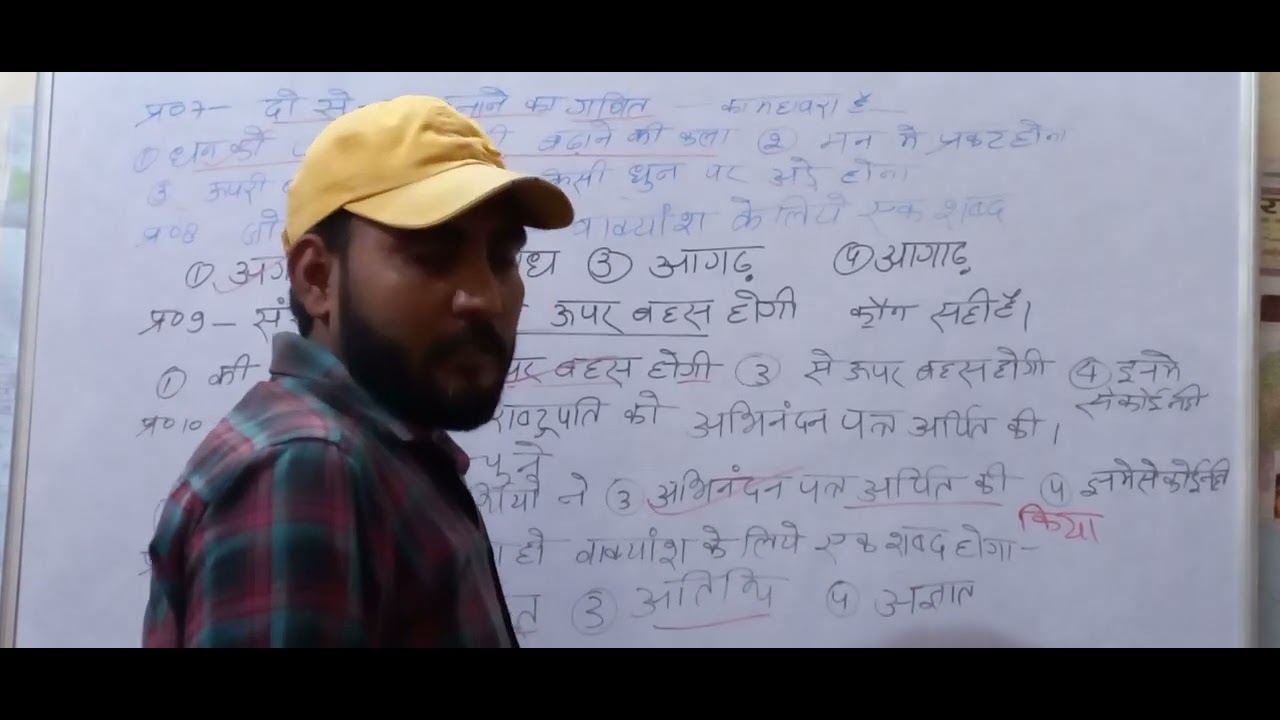 प्र०7- दो से नाने का गणित का महावरा है
① धन को बढ़ाने की कला ② मन मे प्रकट होना
③ ऊपरी किसी धुन पर अड़े होना
प्र०8 जो वाक्यांश के लिये एक शब्द
① अग ाध ③ आगढ़ ④ आगाढ़
प्र०9- सं ऊपर बहस होगी कौन सही है।
① की पर बहस होगी ③ से ऊपर बहस होगी ④ इनमे से कोई नही
प्र०10 राष्ट्रपति को अभिनंदन पत्र अर्पित की।
ने ③ अभिनंदन पत्र अर्पित की ④ इनमे से कोई नही
किया
हो वाक्यांश के लिये एक शब्द होगा-
त ③ अतिथि ④ अज्ञात